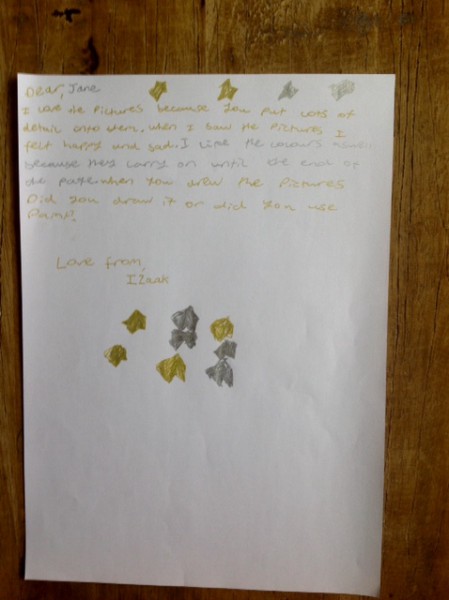 Dear, Jane
I Love the Pictures because You Put Lots of
detail onto them, when I saw the Pictures I
felt happy and sad. I Like the colours
because they carry on until the end of
the page. when You drew the Pictures
Did you draw it or did You use
Paint?
Love from,
Izaak